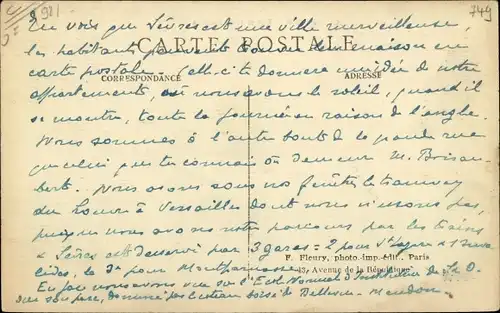 1921
749
Tu vois que Sèvres est une ville merveilleuse,
les habitants peuvent avoir leur maison en
CARTE POSTALE
carte postale. Celle-ci te donnera une idée de notre
CORRESPONDANCE
ADRESSE
appartement, où nous avons le soleil, quand il
se montre, toute la journée en raison de l'angle.
Nous sommes à l'autre bout de la grande rue
que celui que tu connais où demeure M.
Nous avons sous nos fenêtres le tramway
du Louvre à Versailles dont nous n'usons pas,
puisque nous avons notre parcours par les trains
Sèvres est desservi par 3 gares = 2 pour St Lazare & Inva
lides, la 3e pour Montparnasse.
F. Fleury, photo-imp.-édit., Paris
43, Avenue de la République
En face nous avons vue sur l'Ecole Normale d'Institutrices de S. & O.
dans son parc, dominé par coteau boisé de Bellevue-Meudon.